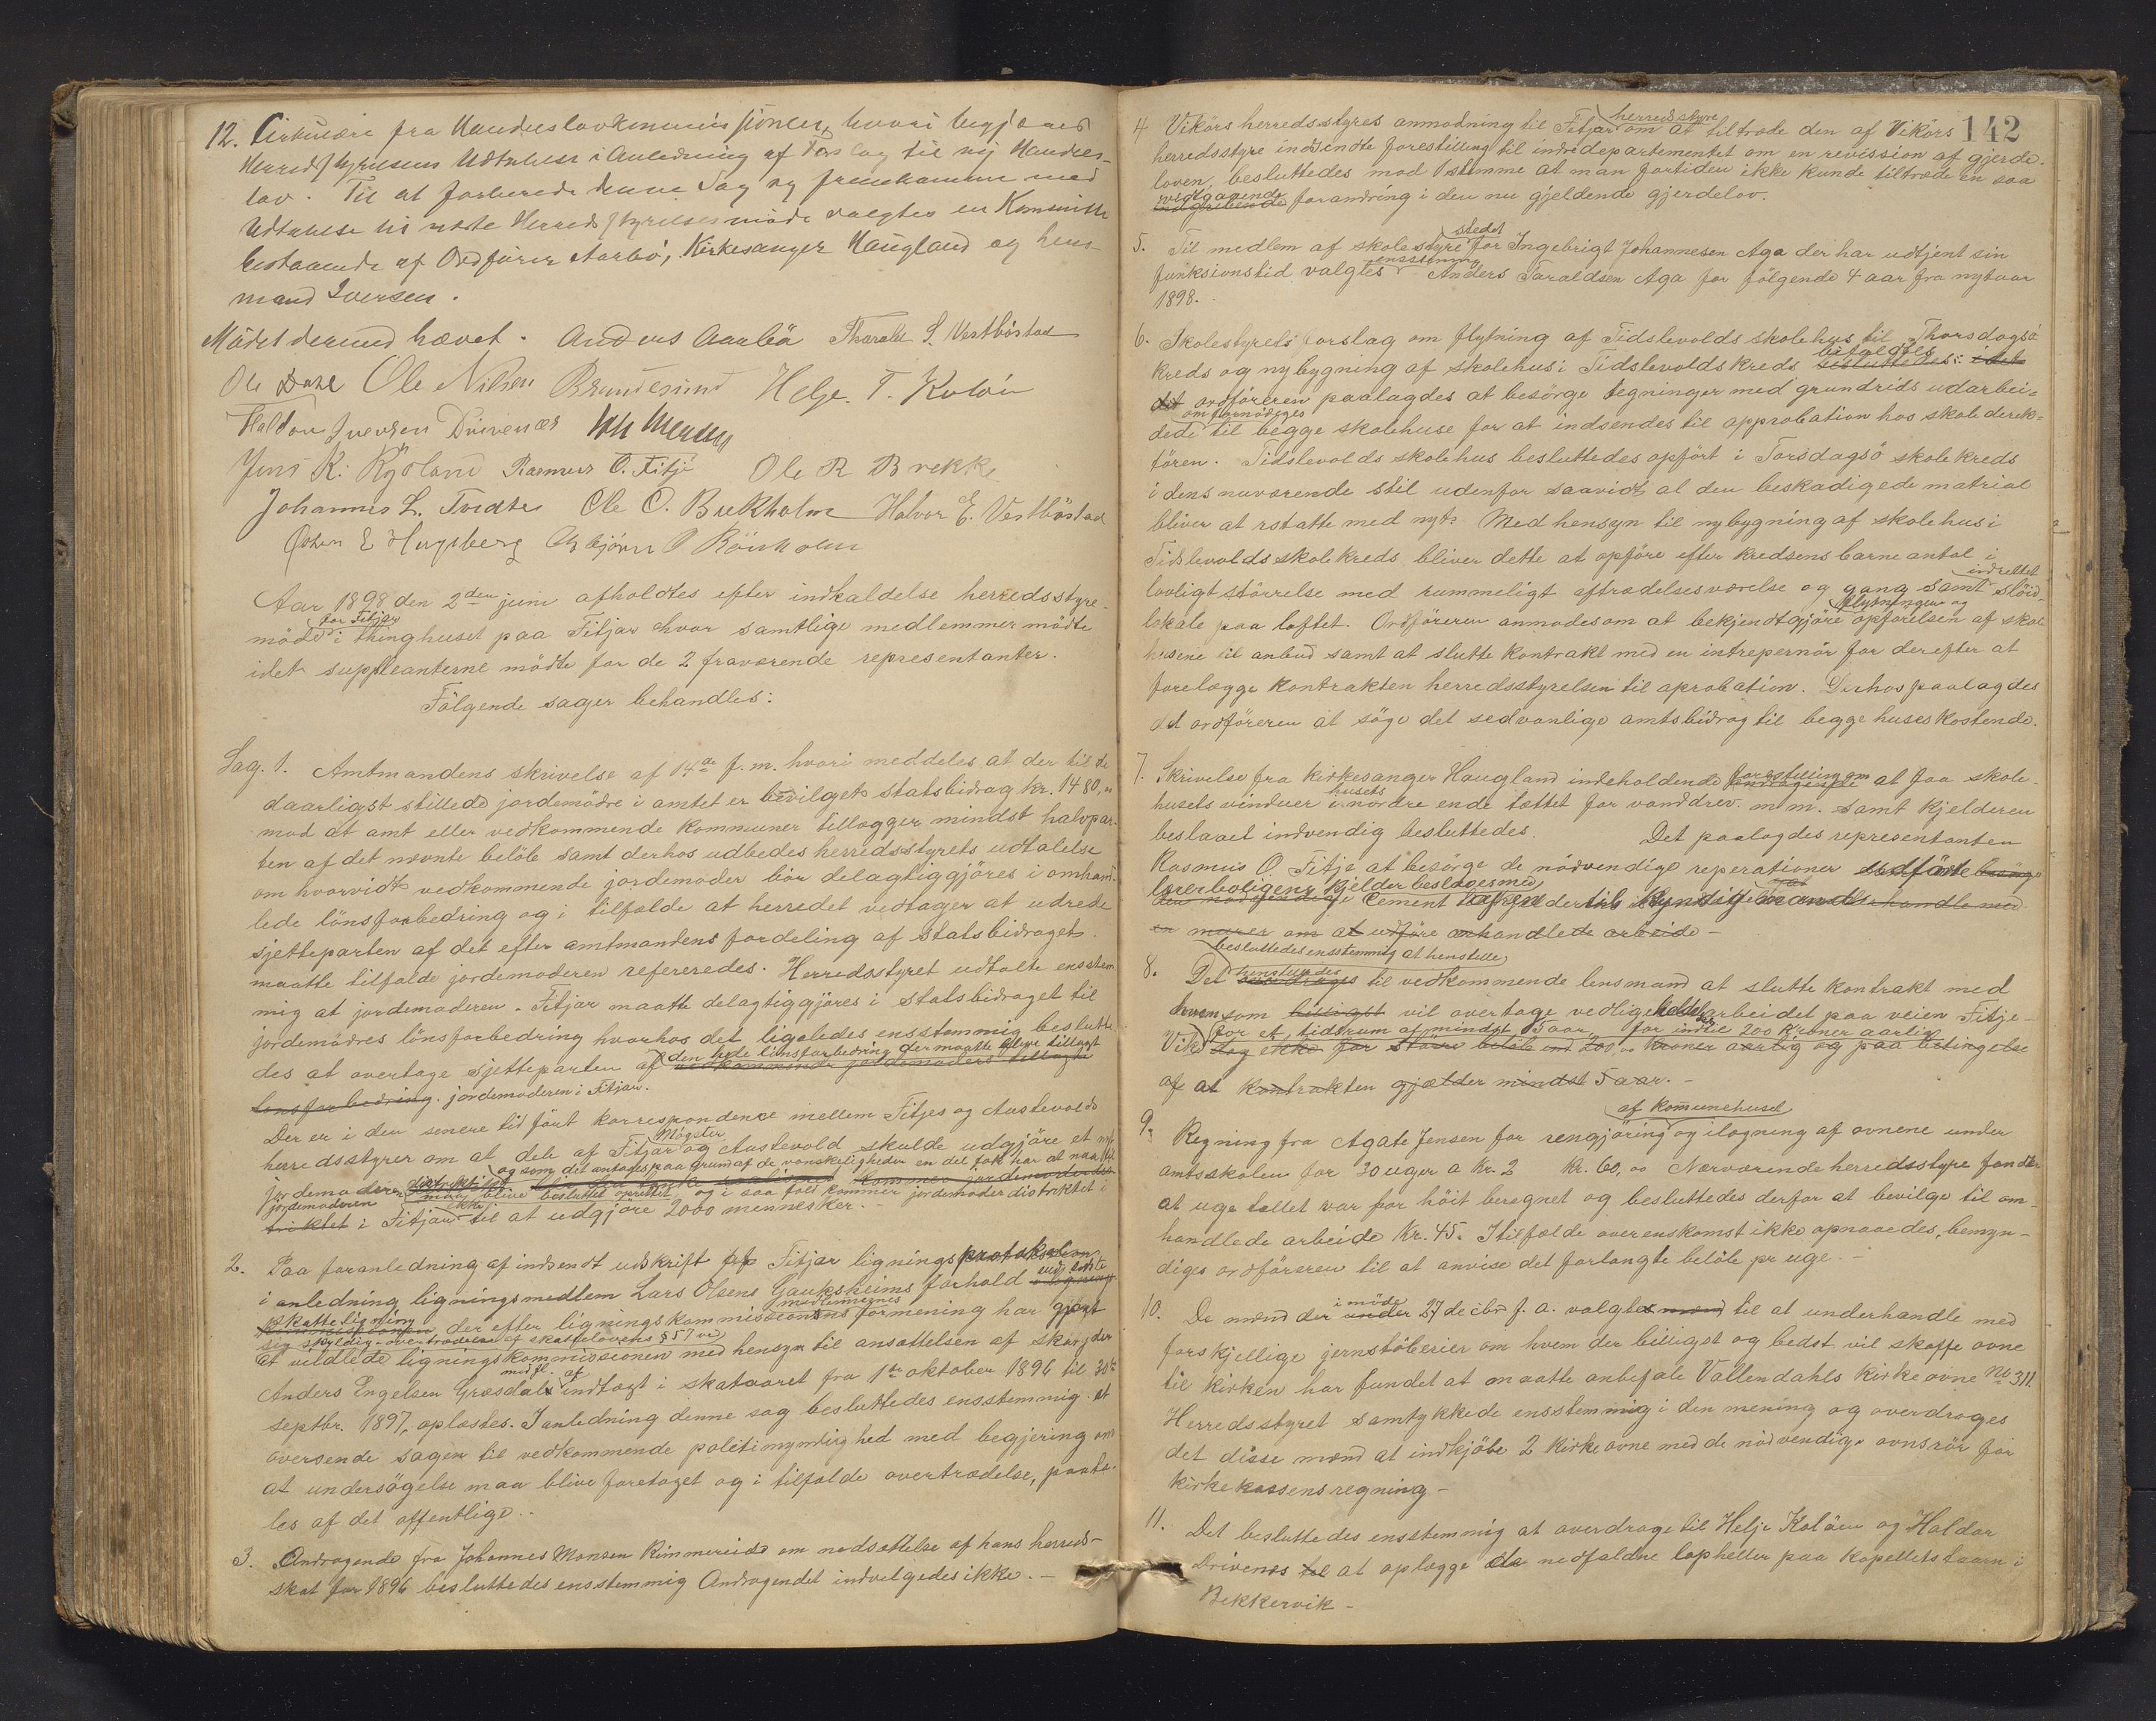 12. Cirkulære fra Handelslovkommissjonen, hvori begjæres
Herredsstyrelsens Udtalelse i Anledning af Forslag til ny Handels-
lov. Til at forberede denne Sag og fremkomme med
Udtalelse til næste Herredsstyrelsesmöde valgtes en Kommitte
bestaaende af Ordförer Aarbö, Kirkesanger Haugland og Lens-
mand Iversen.
Mödet dermed hævet. Anders Aarbö Tharald S. Vestböstad
Ole Dale Ole Nilsen Brandesund Helge. T. Koloen
Haldor Iversen Drivenes
Jens K. Rydland Rasmus O. Fitje Ole R Brekke
Johannes L. Tvedte Ole O. Bukholm Halvor E. Vestböstad
Johan E Hugsberg Asbjörn O Rönholm
Aar 1898 den 2den juni afholdtes efter indkaldelse herredsstyre-
möde for Fitjar i thinghuset paa Fitjar hvor samtlige medlemmer mödte
idet suppleanterne mödte for de 2 fraværende representanter.
Fölgende sager behandles:
Sag. 1. Amtmandens skrivelse af 14de f.m. hvori meddeles at der til de
daarligst stillede jordemödre i amtet er bevilget statsbidrag kr. 1480,"
mod at amt eller vedkommende kommuner tillægger mindst halvpar-
ten af det nævnte belöb samt derhos udbedes herredsstyrets udtalelse
om hvorvidt vedkommende jordemoder bör delagtiggjöres i omhand-
lede lönsforbedring og i tilfælde at herredet vedtager at udrede
sjetteparten af det efter amtmandens fordeling af Statsbidraget
maatte tilfalde jordemoderen refereredes. Herredsstyret udtalte enstem-
mig at jordemoderen i Fitjar maatte delagtiggjöres i Statsbidraget til
jordemödres lönsforbedring hvorhos det ligeledes ensstemmig beslutte-
des at overtage sjetteparten af den hele lönsforbedring der maatte blive tillagt
vedkommende jordemoders tillagte
lönsforbedring. jordemoderen i Fitjar.
Der er i den senere tid fört korrespondence mellem Fitjes og Austevolds
herredsstyrer om at dele af Fitjar Mögster og Austevold skulde udgjöre et nyt
jordemoderdistrikt og som det antages paa grund af de vanskeligheder en del folk har at naa til
jordemoderen maa blive besluttet oprettet og i saa fald kommer jordemoderdistriktet i
triktet i Fitjar ikke til at udgjöre 2000 mennesker.
2. Paa foranledning af indsendt udskrift af Fitjar ligningsprotokol
i anledning ligningsmedlem Lars Olsens Gauksheims forhold ved sidste
skatteligning der efter ligningskommissionens medlemmernes formening har gjort
sig skyldig i overtrædelse af skattelovens § 57 ved
at vildlede ligningskommissionen med hensyn til ansættelsen af skatyder
Anders Engelsen Græsdals indtægt i skataaret fra 1ste oktober 1896 til 30te
septbr. 1897, oplæstes. I anledning denne sag besluttedes ensstemmig at
oversende sagen til vedkommende politimyndighed med begjering om
at undersögelse maa blive foretaget og i tilfælde overtrædelse, paata-
les af det offentlige.
3. Andragende fra Johannes Monsen Rimmereide om nedsættelse af hans herreds-
skat for 1896 besluttedes ensstemmig Andragendet indvilgedes ikke. -
142
4 Vikörs herredsstyres anmodning til Fitjar herredsstyre om at tiltræde den af Vikörs
herredsstyre indsendte forestilling til indredepartementet om en revission af gjerde-
loven, besluttedes mod 1 stemme at man fortiden ikke kunde tiltræde en saa
vidtgaaende forandring i den nu gjeldende gjerdelov.
5. Til medlem af skolestyre stedet for Ingebrigt Johannesen Aga der har udtjent sin
funksionstid valgtes ensstemmig Anders Taraldsen Aga for fölgende 4 aar fra nytaar
1898.
6. Skolestyrets forslag om flytning af Tidslevolds skolehus til Thorsdagsö
kreds og nybygning af skolehus i Tidslevolds kreds bifaldtes besluttedes: idet
det ordföreren paalagdes at besörge tegninger med grundrids udarbei-
dede om fornödiges til begge skolehuse for at indsendes til approbation hos skolederek-
tören. Tidslevolds skolehus besluttedes opfört i Torsdagsö skolekreds
i dens nuværende stil udenfor saavidt at den beskadigede matrial
bliver at rstatte med nyt. Med hensyn til nybygning af skolehus i
Tidslevolds skolekreds bliver dette at opföre efter kredsens barneantal i
lovligt störrelse med rummeligt aftrædelsesværelse og gang samt indrettet slöid-
lokale paa loftet. Ordföreren anmodes om at bekjendtgjöre flytningen og opförelsen af skole
husene til anbud samt at slutte kontrakt med en intrepernör for derefter at
forelægge kontrakten herredsstyrelsen til aprobation. Derhos paalagdes
det ordföreren at söge det sedvanlige amtsbidrag til begge huses kostende.
7. Skrivelse fra kirkesanger Haugland indeholdende forestilling om andragende at faa skole-
husets vinduer i husets nordre ende tættet for vanddrev. m.m. samt kjelderen
beslaaet indvendig besluttedes. Det paalagdes representanten
Rasmus O. Fitje at besörge de nödvendige reperationer udförte besörge
Lærerboligens kjelder beslages med
den nödvendige Cement
en murer om at udföre omhandlede arbeide -
8. Det henstilledes overdroges besluttedes ensstemmig at henstille til vedkommende lensmand at slutte kontrakt med
hvem som billigst vil overtage vedligeholdelsesarbeidet paa veien Fitje-
Vik for et tidsrum af mindst 5 aar, for indtil 200 kroner aarlig
dog ikke for större belöb end 200,00 kroner aarlig og paa betingelse
af at kontrakten gjælder mindst 5 aar. -
9. Regning fra Agate Jensen for rengjöring af kommunehuset og ilægning af ovnene under
amtsskolen for 30 uger a Kr. 2 Kr. 60,00 Nærværende herredsstyre fandt
at uge tallet var for höit beregnet og besluttedes derfor at bevilge til om-
handlede arbeide Kr. 45. I tilfælde overenskomst ikke opnaaedes, bemyn-
diges ordföreren til at anvise det forlangte belöb pr uge. -
10. De mænd der i möde under 27 decbr f. a. valgtes mænd til at underhandle med
forskjellige jernstöberier om hvem der billigst og bedst vil skaffe ovne
til kirken har fundet at maatte anbefale Vallendahls Kirkeovne No 311.
Herredsstyret samtykkede ensstemmig i den mening og overdroges
det disse mænd at indkjöbe 2 kirkeovne med de nödvendige ovnsrör for
kirkekassens regning -
11. Det besluttedes ensstemmig at overdrage til Helje Kolöen og Haldor
Drivenes til at oplægge de nedfaldne lapheller paa kapellets taarn i
Bekkervik -